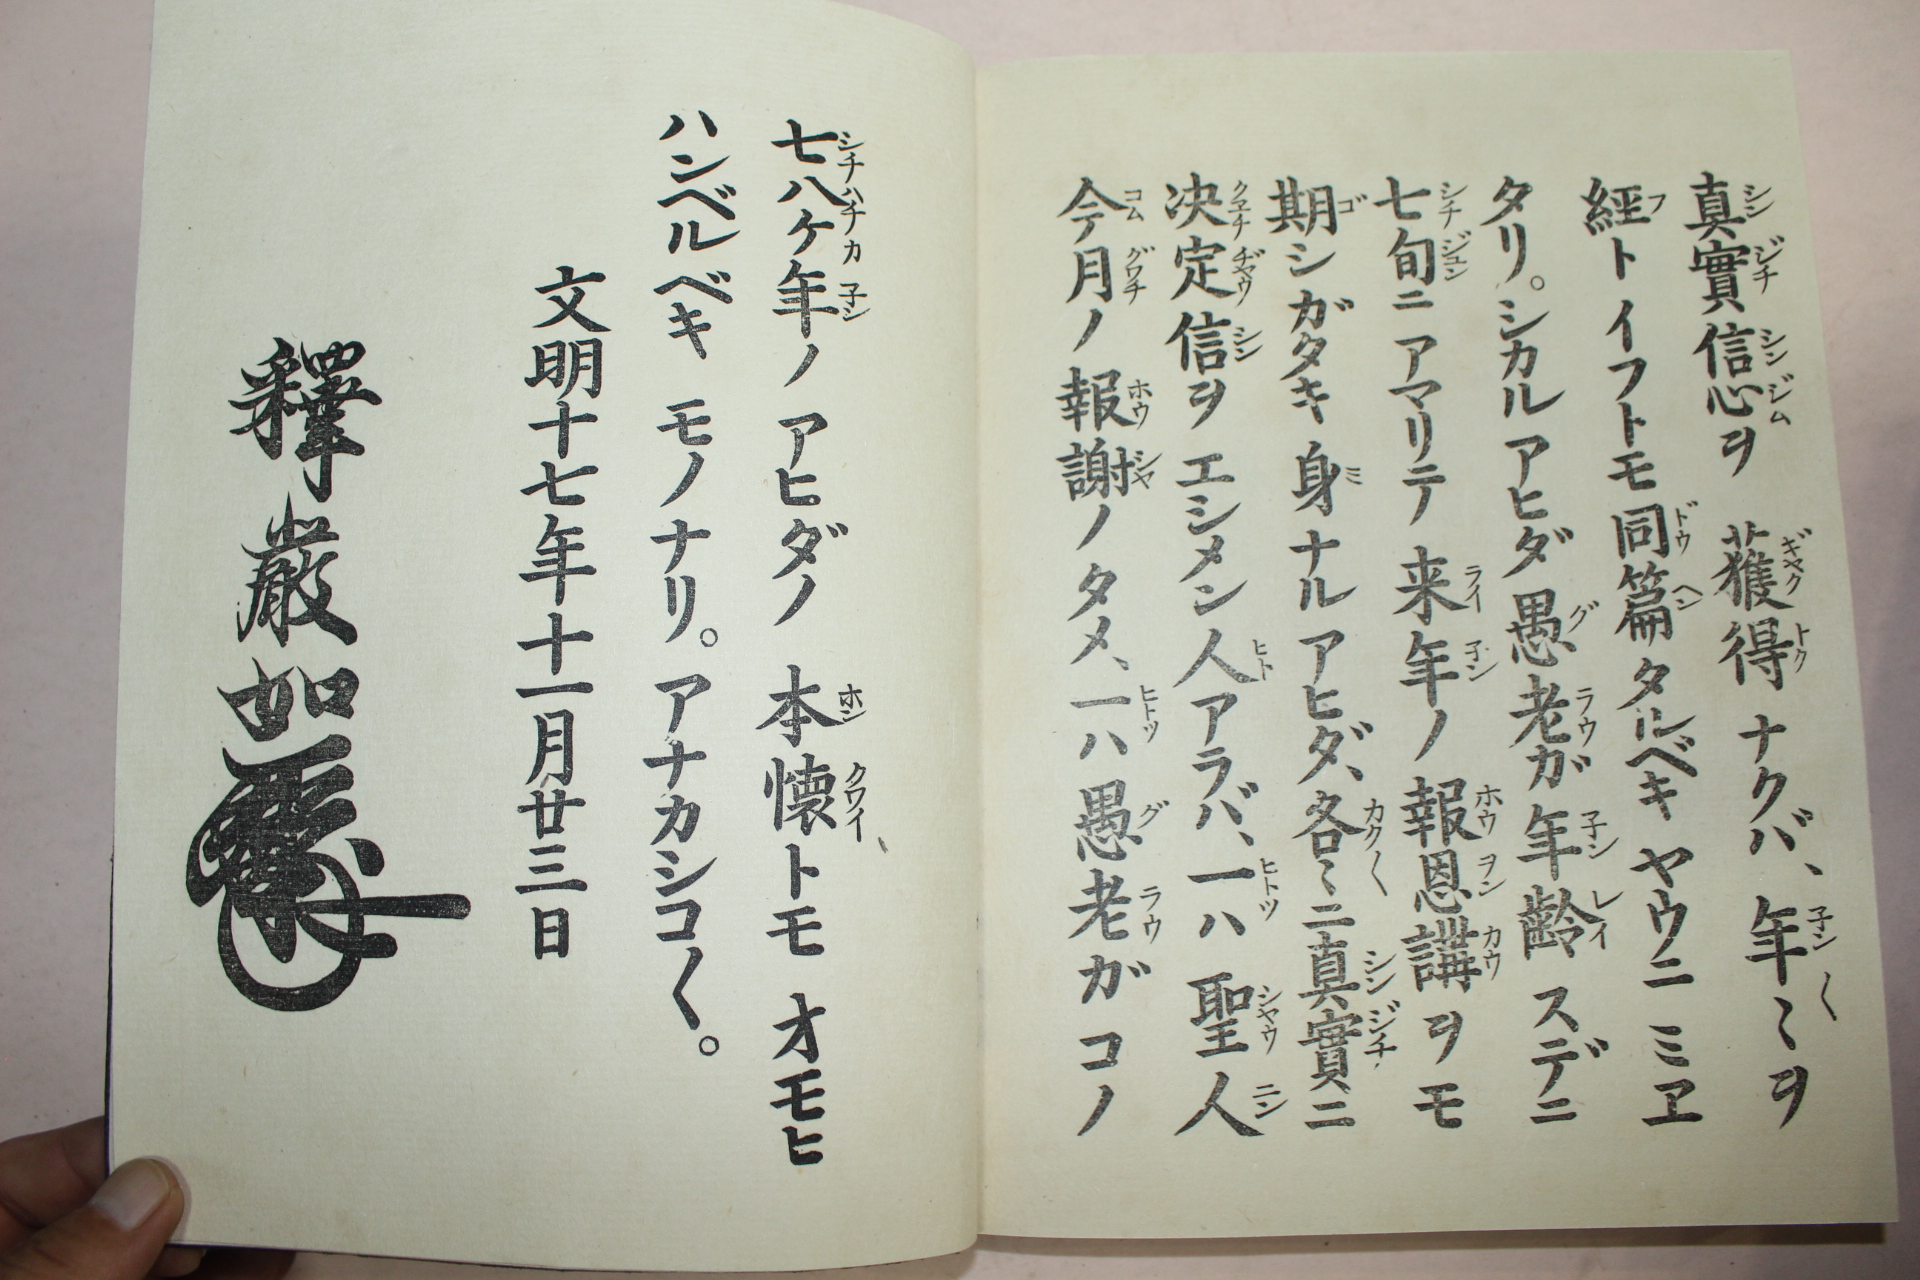 真實信心ヲ 獲得ナクバ、年〻ヲ
經トイフトモ同篇タルベキヤウニミヱ
タリ。シカルアヒダ愚老ガ年齡スデニ
七旬ニアマリテ 来年ノ報恩講ヲモ
期シガタキ身ナルアヒダ、各〻ニ真實ニ
决定信ヲエシメン人アラバ、一ハ聖人
今月ノ報謝ノタメ、一ハ愚老ガコノ
七八ケ年ノ アヒダノ 本懐トモ オモヒ
ハンベルベキ モノナリ。アナカシコ〳〵。
文明十七年十一月廿三日
釋嚴如